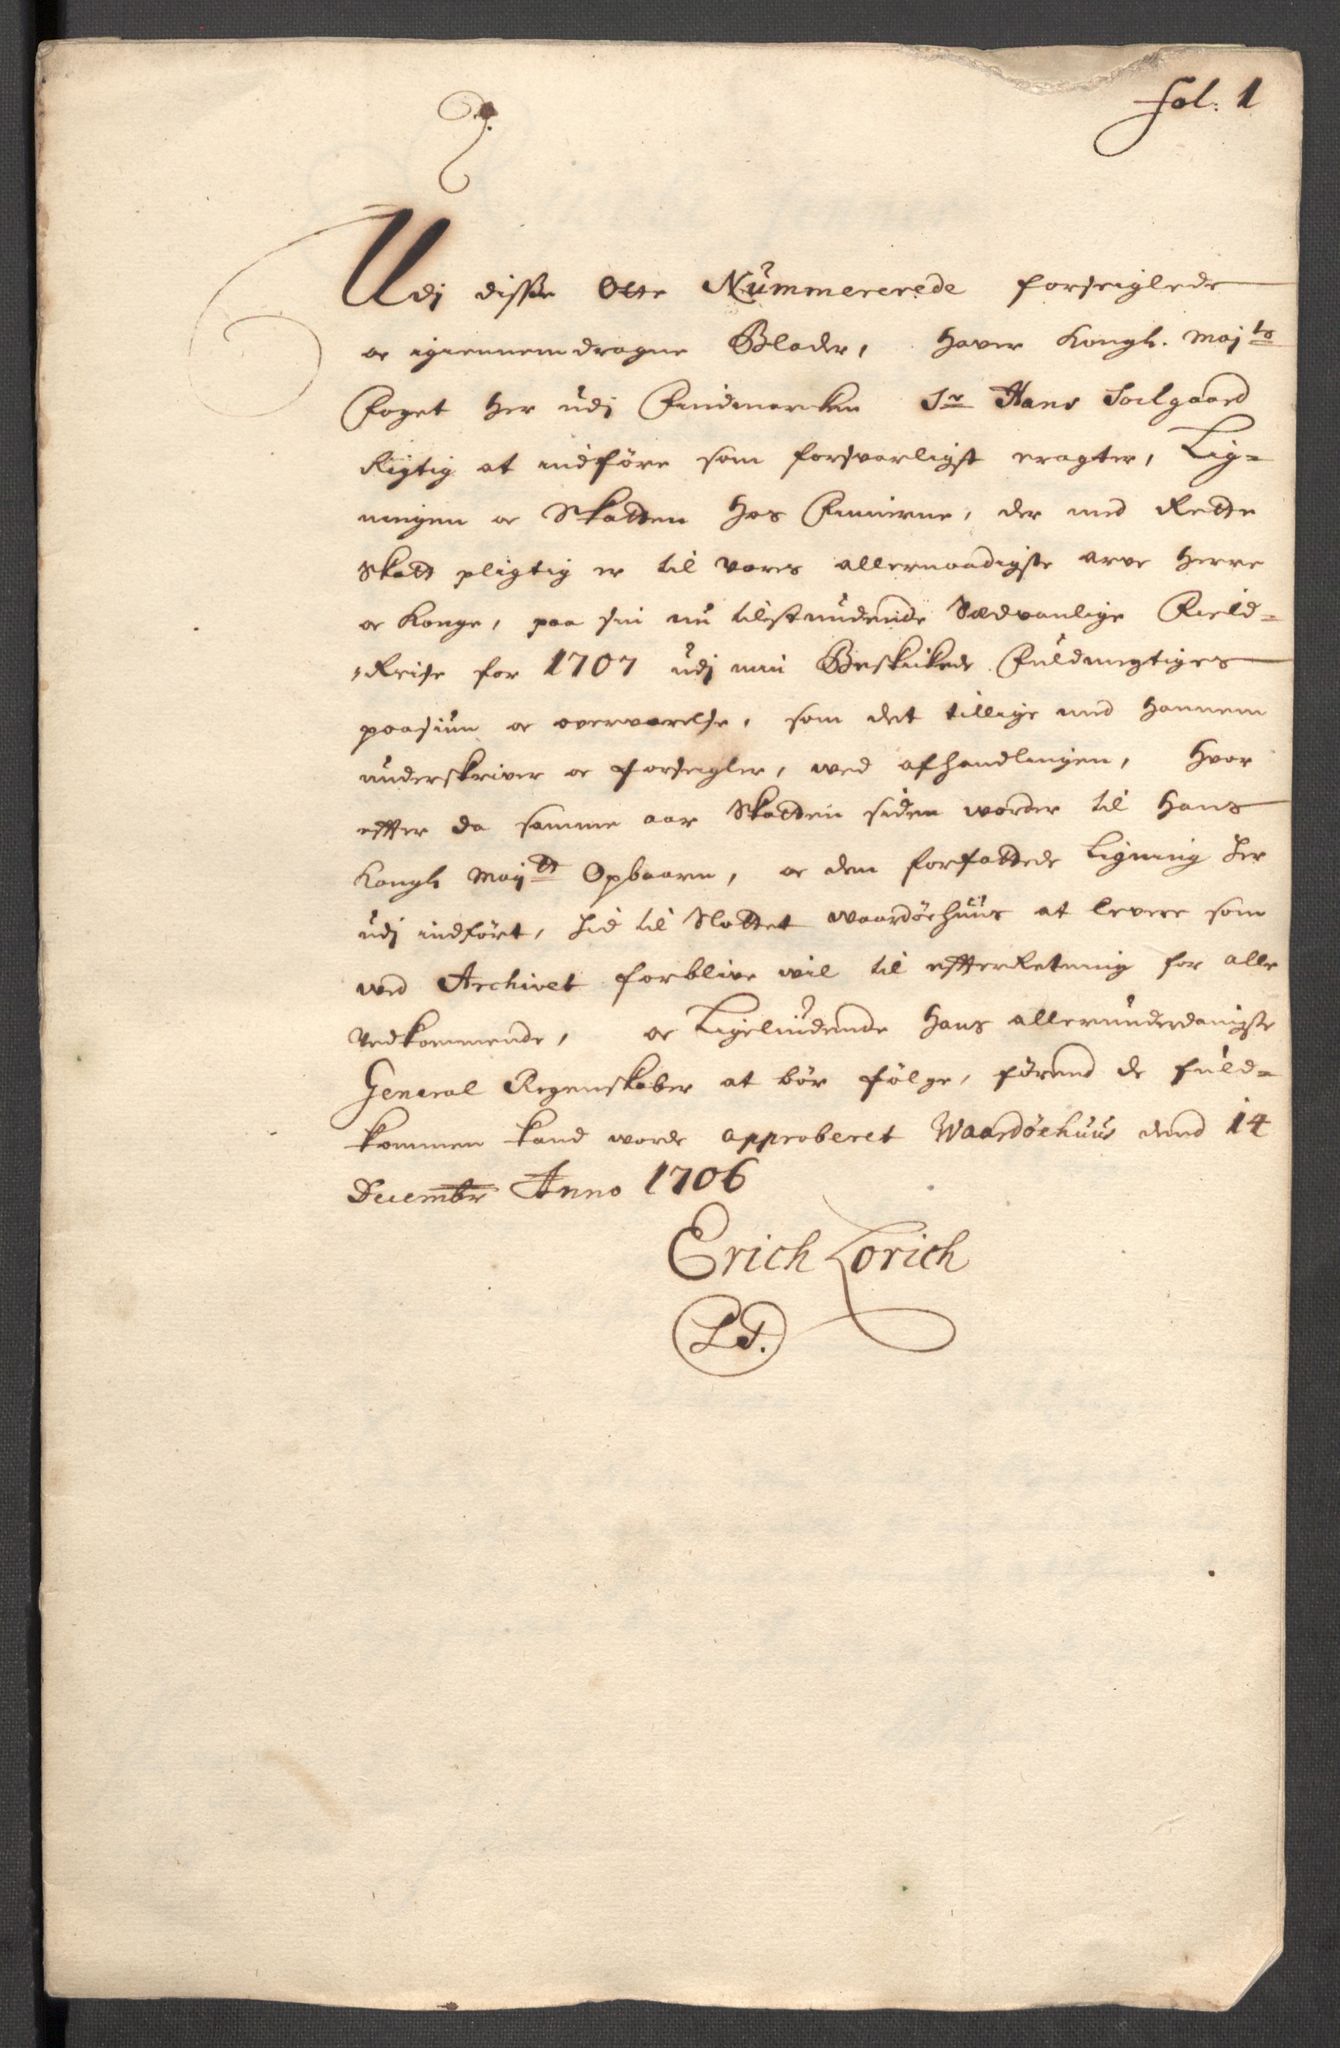 Fol: 1
Udj disse Otte Nummererede forseiglede
oc igiennemdragne Blader, haver Kongl. Maj.ts
Foget her udj Findmarken Sr Hans Soelgaard
Rigtig at indføre som forsvarligst eragter, Lig-
ningen oc Skatten hos Finnerne, der med Rette
Skatt pligtig er til vores allernaadigste arve Herre
oc Konge, paa sin nu tilstundende Sædvanlige Field-
-Reise for 1707 udj min Beskikede Fuldmegtiges
paasiun oc overværelse, som det tillige med hannem
underskriver oc forseigler, ved afhandlingen, hvor
effter da samme aar Skatten siden worder til Hans
Kongl Mayt Opbaaren, oc den forfattede Ligning her
udj indført, hid til Slottet Waardøehuus at levere som
wed Archivet forblive wil til effterRetning for alle
Vedkommende, oc Ligeliudende Hans allerunderdanigste
General Regenskaber at bør følge, førend de fuld-
kommen kand worde approberet Waardøehuus dend 14
Decembr Anno 1706
Erich Lorich
LS.